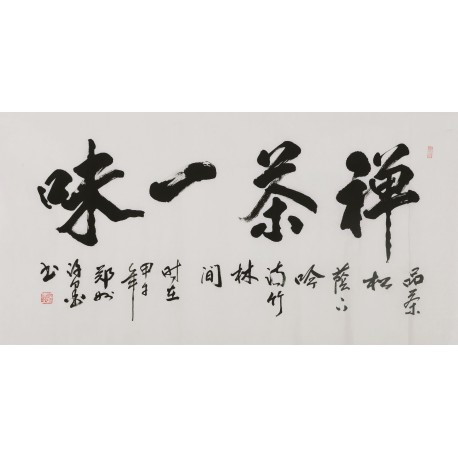 禅茶一味
品茶
松
蔭下
吟
诗竹
林
间
时在
甲午年
郑州
书